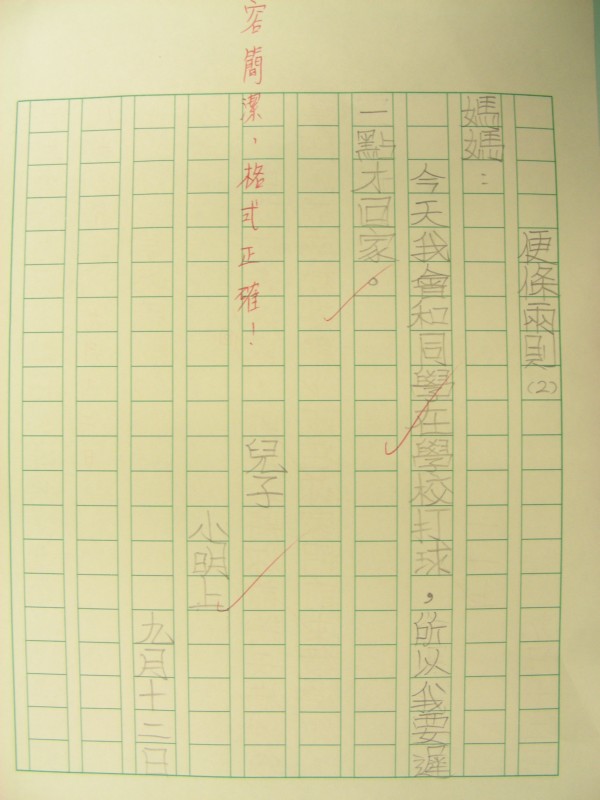 便條兩則(2)
媽媽：
今天我會和同學在學校打球，所以我要遲
一點才回家。
容簡潔，格式正確！
兒子
小明上
九月十二日